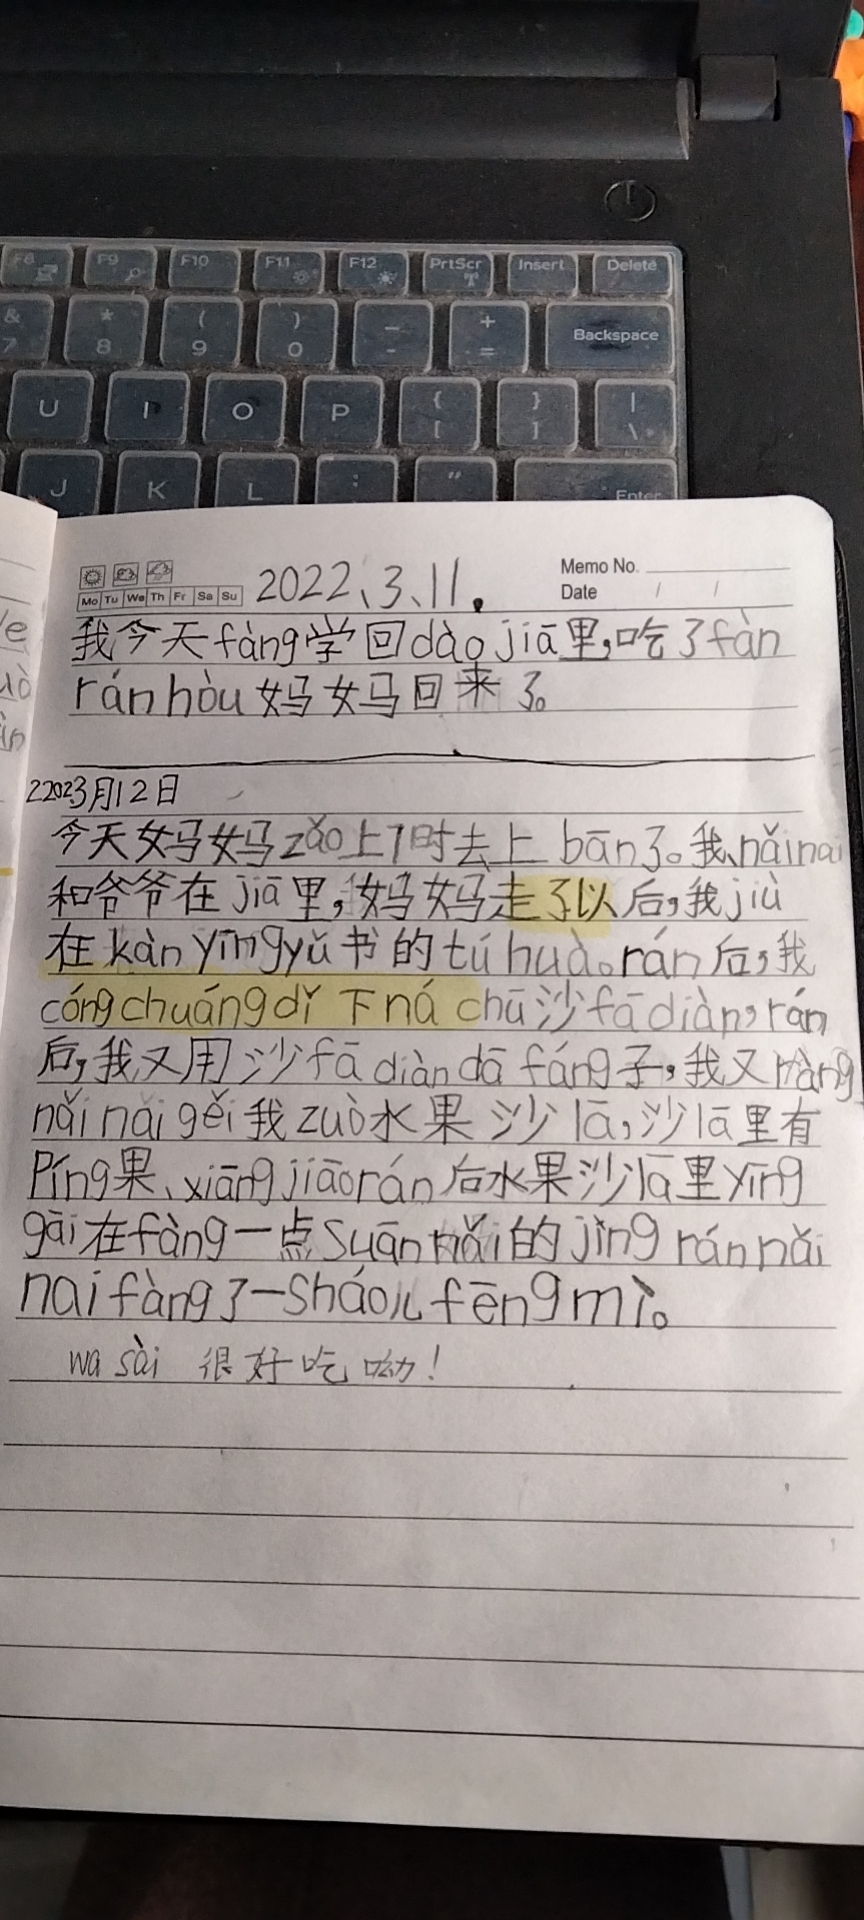 F8 F9 F10 F11 F12 PrtScr Insert Delete
& 7 * 8 ( 9 ) 0 _ - + = Backspace
U I O P { [ } ] | \
J K L : ; " Enter
Mo Tu We Th Fr Sa Su 2022、3、11.
Memo No.
Date / /
我今天fàng学回dào jiā里,吃了fàn
rán hòu 妈妈回来了。
22023月12日
今天妈妈zǎo上7时去上 bān了。我、nǎinai
和爷爷在jiā里,妈妈走了以后,我jiù
在kàn yīngyǔ书的tú huà。rán后,我
cóng chuáng dǐ 下ná chū 沙fā diàn,rán
后,我又用沙fā diàn dā fáng子,我又ràng
nǎi nai gěi我zuò水果沙lā,沙lā里有
Píng果、xiāng jiāo rán后水果沙lā里yīng
gāi在fàng一点suān nǎi的jìng rán nǎi
nai fàng了一sháo儿fēng mì。
wa sài 很好吃呦!